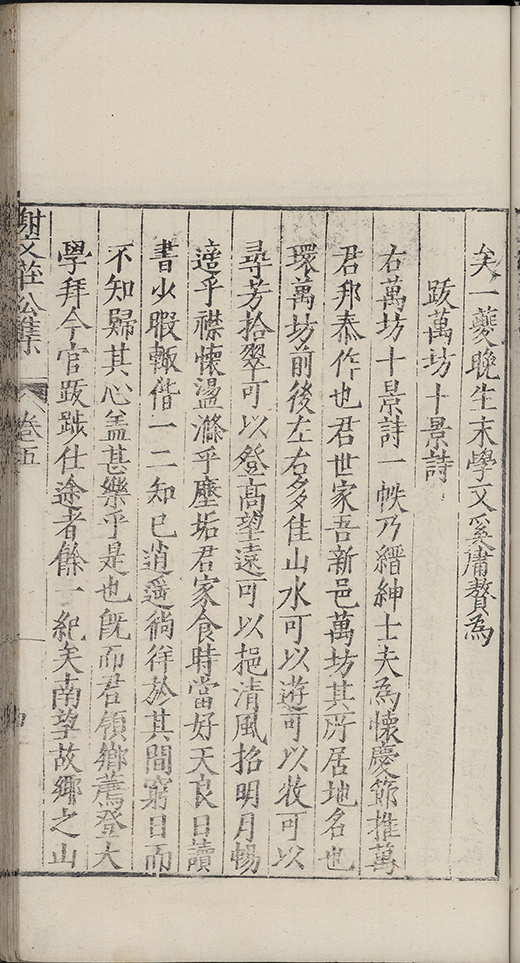 矣一夔晚生末學文奚庸贅為
跋萬坊十景詩
右萬坊十景詩一帙乃縉紳士夫為懷慶節推萬
君邦泰作也君世家吾新邑萬坊其所居地名也
環萬坊前後左右多佳山水可以遊可以牧可以
尋芳拾翠可以登髙望遠可以挹清風招明月暢
適乎襟懷盪滌乎塵垢君家食時當好天良日讀
書少暇輙偕一二知已逍遥徜徉於其間窮日而
不知歸其心盖甚樂乎是也旣而君領鄉薦登大
學拜今官跋踄仕途者餘一紀矣南望故鄉之山
謝文莊公集 卷五